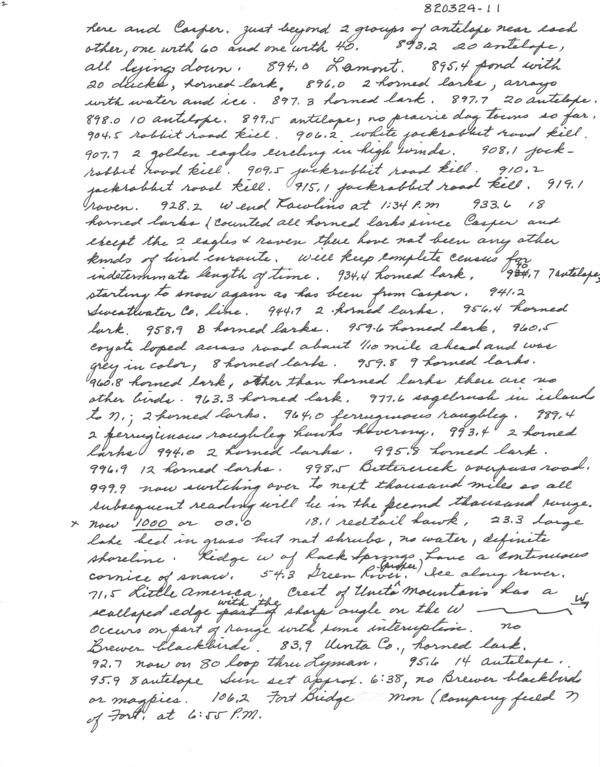 820324-11
here and Casper. just beyond 2 groups of antelope near each
other, one with 60 and one with 40. 893.2 20 antelope,
all lying down. 894.0 Lamont. 895.4 pond with
20 ducks, horned lark. 896.0 2 horned larks, arroyo
with water and ice. 897.3 horned lark. 897.7 20 antelope.
898.0 10 antelope. 899.5 antelope, no prairie dog towns so far.
904.5 rabbit road kill. 906.2 white jackrabbit road kill.
907.7 2 golden eagles circling in high winds. 908.1 jack-
rabbit road kill. 909.5 jackrabbit road kill. 910.2
jackrabbit road kill. 915.1 jackrabbit road kill. 919.1
raven. 928.2 W end Rawlins at 1:34 P.M 933.6 18
horned larks (counted all horned larks since Casper and
except the 2 eagles & raven there have not been any other
kinds of bird enroute. Will keep complete census for
indeterminate length of time. 934.4 horned lark. 940.7 7 antelope,
starting to snow again as has been from Casper. 941.2
Sweatwater Co. line. 944.7 2 horned larks. 956.4 horned
lark. 958.9 8 horned larks. 959.6 horned lark. 960.5
coyote loped across road about 1/10 mile ahead and was
grey in color, 8 horned larks. 959.8 9 horned larks.
960.8 horned lark, other than horned larks there are no
other birds. 963.3 horned lark. 977.6 sagebrush in island
to N.; 2 horned larks. 964.0 ferruginous roughleg. 989.4
2 ferruginous roughleg hawks hovering. 993.4 2 horned
larks 994.0 2 horned larks. 995.8 horned lark.
996.9 12 horned larks. 998.5 Bittercreek overpass road.
999.9 now switching over to next thousand miles so all
subsequent reading will be in the second thousand range.
x now 1000 or 00.0 18.1 redtail hawk, 23.3 large
lake bed in grass but not shrubs, no water, definite
shoreline. Ridge W of Rock Springs have a continuous
cornice of snow. 54.3 Green River (proper). Ice along river.
71.5 Little America. Crest of Uinta Mountains has a
scalloped edge with the part of sharp angle on the W W
occurs on part of range with some interruption. no
Brewer blackbirds. 83.9 Uinta Co., horned lark.
92.7 now on 80 loop thru Lyman. 95.6 14 antelope.
95.9 8 antelope Sun set approx. 6:38, no Brewer blackbirds
or magpies. 106.2 Fort Bridge Mon (camping field N
of Fort. at 6:55 P.M.